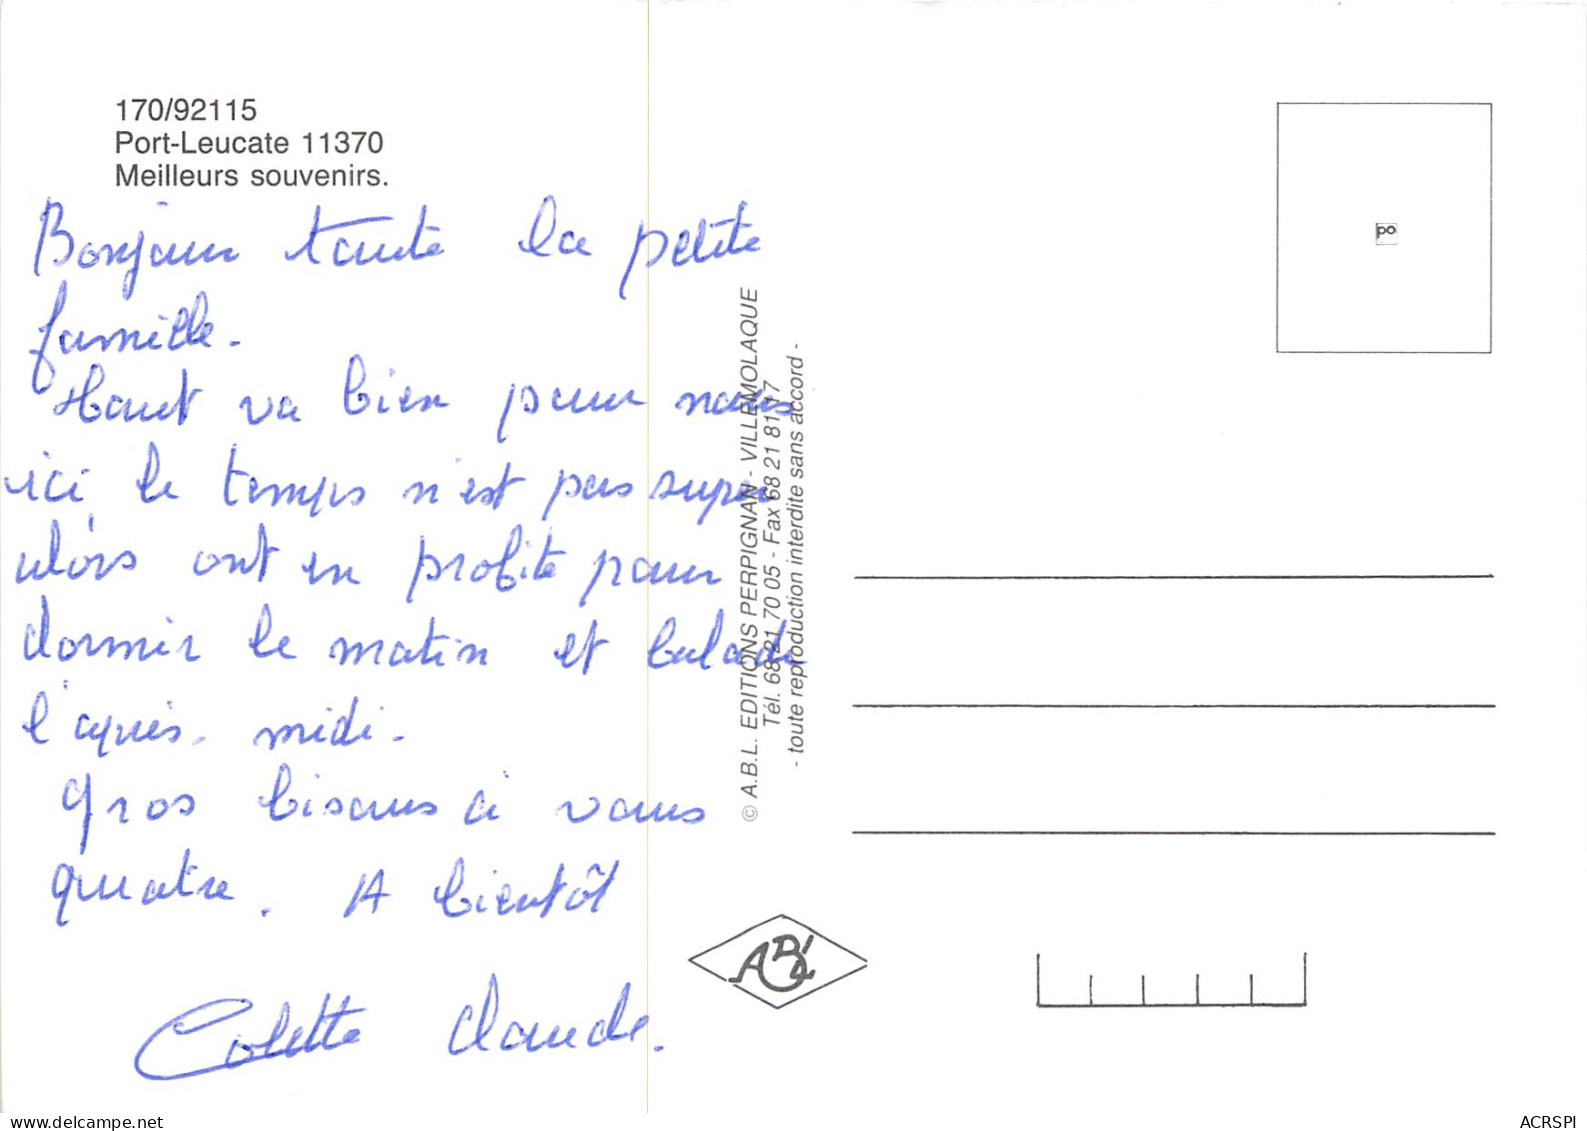 170/92115
Port-Leucate 11370
Meilleurs souvenirs.
Bonjour toute la petite
famille.
Tout va bien pour nous
ici, le temps n'est pas super
alors ont en profite pour
dormir le matin et balade
l'après-midi.
Gros bisous à vous
quatre. A bientôt
Colette Claude.
© A.B.L. EDITIONS PERPIGNAN - VILLEMOLAQUE
Tél. 68 21 70 05 - Fax 68 21 81 17
- toute reproduction interdite sans accord -
po
ABL
www.delcampe.net
ACRSPI